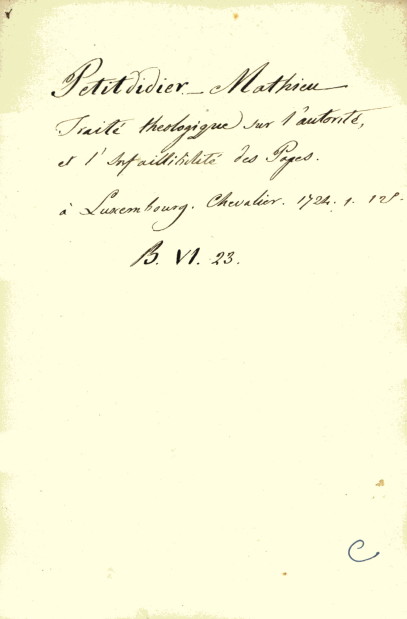 Petitdidier - Mathieu
Traité theologique sur l'autorité,
et l'Infaillibilité des Papes.
à Luxembourg. Chevalier. 1724. 1. 12°.
B. VI. 23.
C